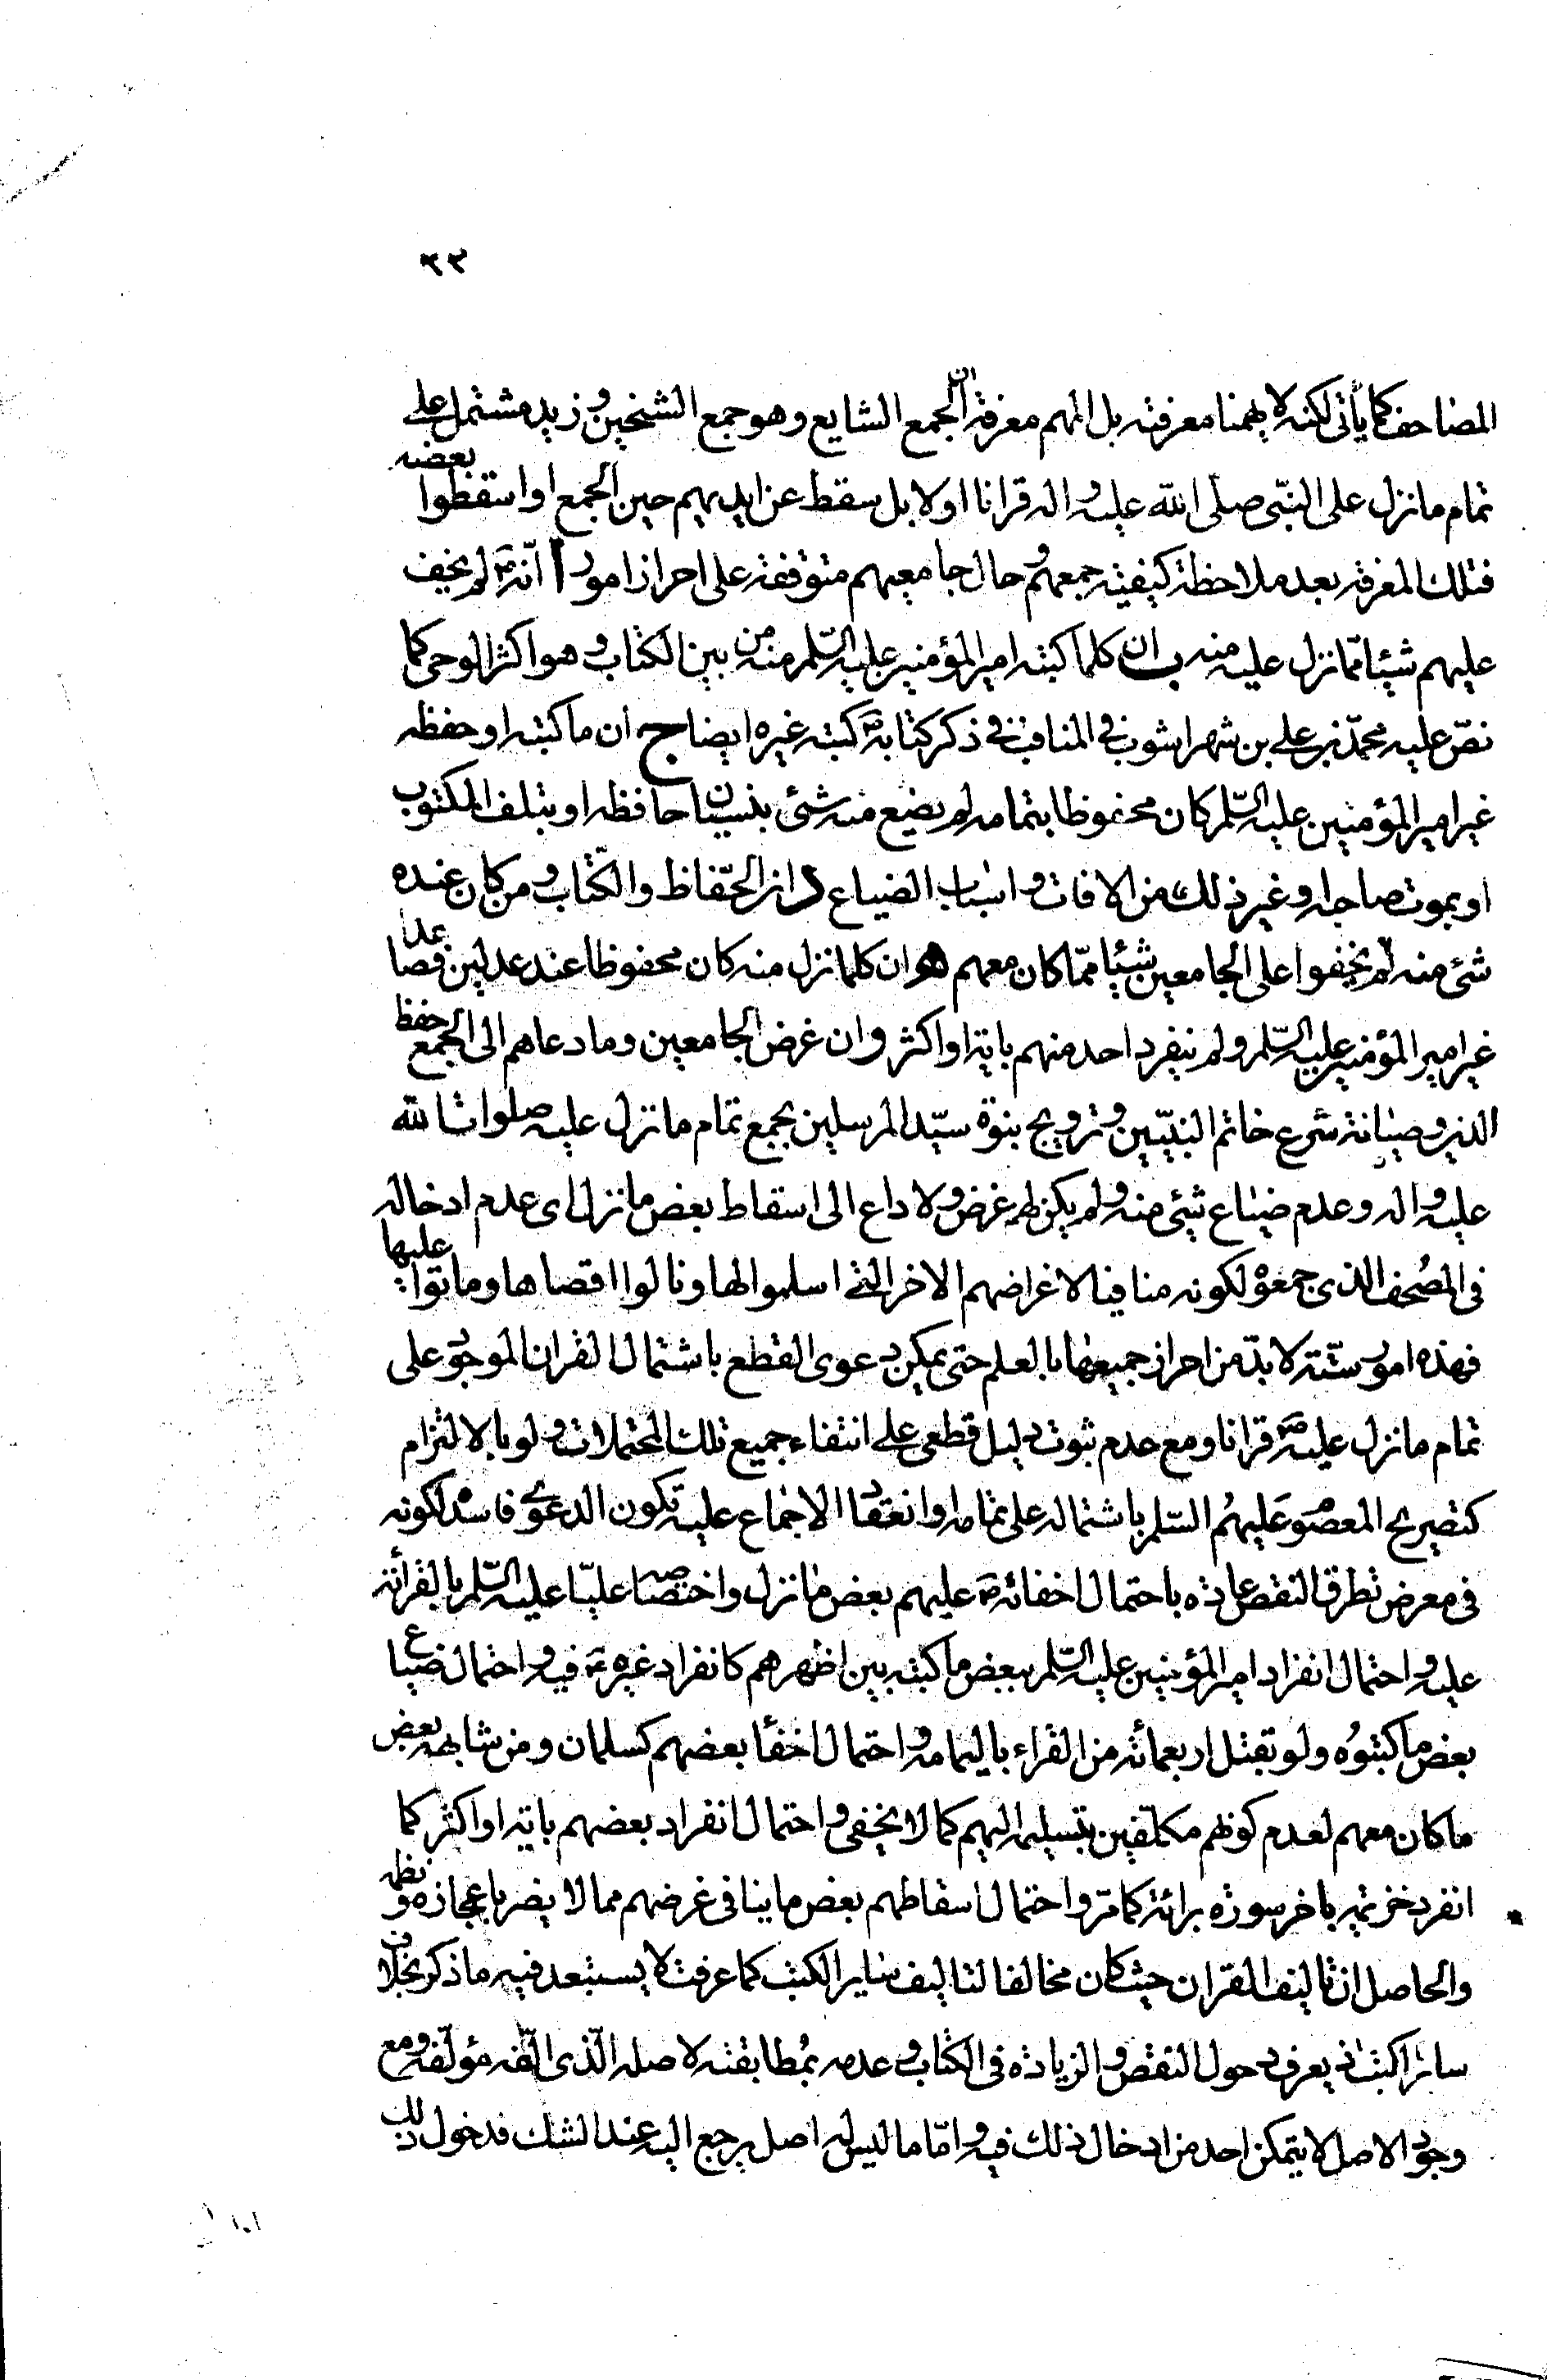 ٣٣
المصاحف كما يأتى لكنه لا يهمنا معرفته بل المهم معرفة ان الجمع الشايع وهو جمع الشيخين و زيد مشتمل على
تمام ما نزل على النبّى صلّى الله عليه و اله قرانا اولا بل سقط عن ايديهم حين الجمع او اسقطوا بعضه
فتلك المعرفة بعد ملاحظة كيفية جمعهم و حال جامعيهم متوقفة على احراز امور ا انّه ص لم يخف
عليهم شيئا ممّا نزل عليه منه ب ان كلما كتبه امير المؤمنين عليه السّلم منه من بين الكتاب و هو اكثر الوحى كما
نصّ عليه محمّد بن على بن شهراشوب فى المناقب فى ذكر كتابه ص كتبه غيره ايضا ج ان ما كتبه او حفظه
غير امير المؤمنين عليه السّلم كان محفوظا بتمامه لم يضيع منه شئ بنسيان حافظه او بتلف المكتوب
او بموت صاحبه او غير ذلك من الافات و اسباب الضياع د ان الحفّاظ والكتّاب و من كان عنده
شئ منه لم يخفوا على الجامعين شيئا ممّا كان معهم ه و ان كلما نزل منه كان محفوظا عند عدلين فصاعدا
غير امير المؤمنين عليه السّلم ولم ينفرد احد منهم باية او اكثر و ان غرض الجامعين وما دعاهم الى الجمع حفظ
الدين و صيانة شرع خاتم النبيّين و ترويج نبوّة سيّد المرسلين بجمع تمام ما نزل عليه صلوات الله
عليه و اله وعدم ضياع شئ منه و لم يكن لهم غرض ولا داع الى اسقاط بعض ما نزل اى عدم ادخاله
فى المصحف الذى جمعوه لكونه منافيا لاغراضهم الاخر التى اسلموا لها ونالوا اقصاها وماتوا عليها
فهذه امور ستّة لا بدّ من احراز جميعها بالعلم حتى يمكن دعوى القطع باشتمال القران الموجود على
تمام ما نزل عليه ص قرانا ومع عدم ثبوت دليل قطعى على انتفاء جميع تلك المحتملات و لو بالالتزام
كتصريح المعصوم عليهم السّلم باشتماله على تمامه او انعقاد الاجماع عليه تكون الدعوى فاسدة لكونه
فى معرض تطرق النقص عادة باحتمال اخفائه ص عليهم بعض ما نزل و اختصاصه عليّا عليه السّلم بالقرائة
عليه و احتمال انفراد امير المؤمنين عليه السّلم ببعض ما كتبه بين اظهرهم كانفراد غيره فيه و احتمال ضياع
بعض ما كتبوه ولو بقتل اربعمائة من القراء باليمامة و احتمال اخفأ بعضهم كسلمان و من شابهه بعض
ما كان معهم لعدم كونهم مكلّفين بتسليمه اليهم كما لا يخفى و احتمال انفراد بعضهم باية او اكثر كما
انفرد خزيمة باخر سورة برائة كما مرّ و احتمال اسقاطهم بعض ما ينافى غرضهم مما لا يضر باعجازه و نظمه
والحاصل ان تاليف القران حيث كان مخالفا لتاليف ساير الكتب كما عرفت لا يستبعد فيه ما ذكر بخلاف
سائر الكتب اذ يعرف دخول النقص و الزيادة فى الكتاب و عدمه بمطابقته لاصله الّذى الّفه مؤلّفه و مع
وجود الاصل لا يتمكن احد من ادخال ذلك فيه و امّا ما ليس له اصل يرجع اليه عند الشك فدخول ذلك